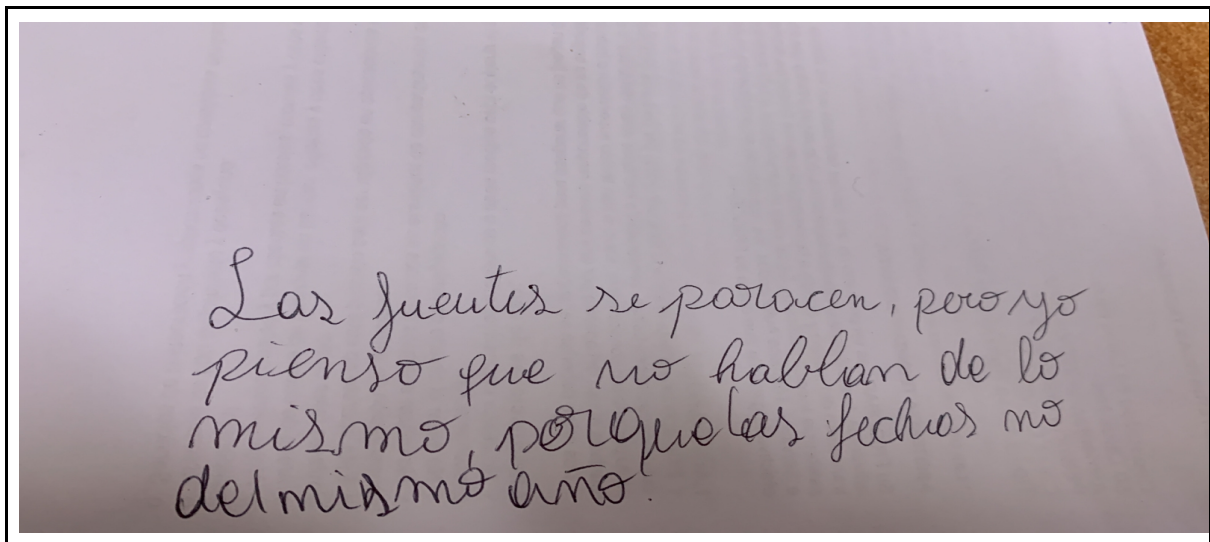 Las fuentes se paracen, pero yo
pienso que no hablan de lo
mismo, porque las fechas no
del mismo año.